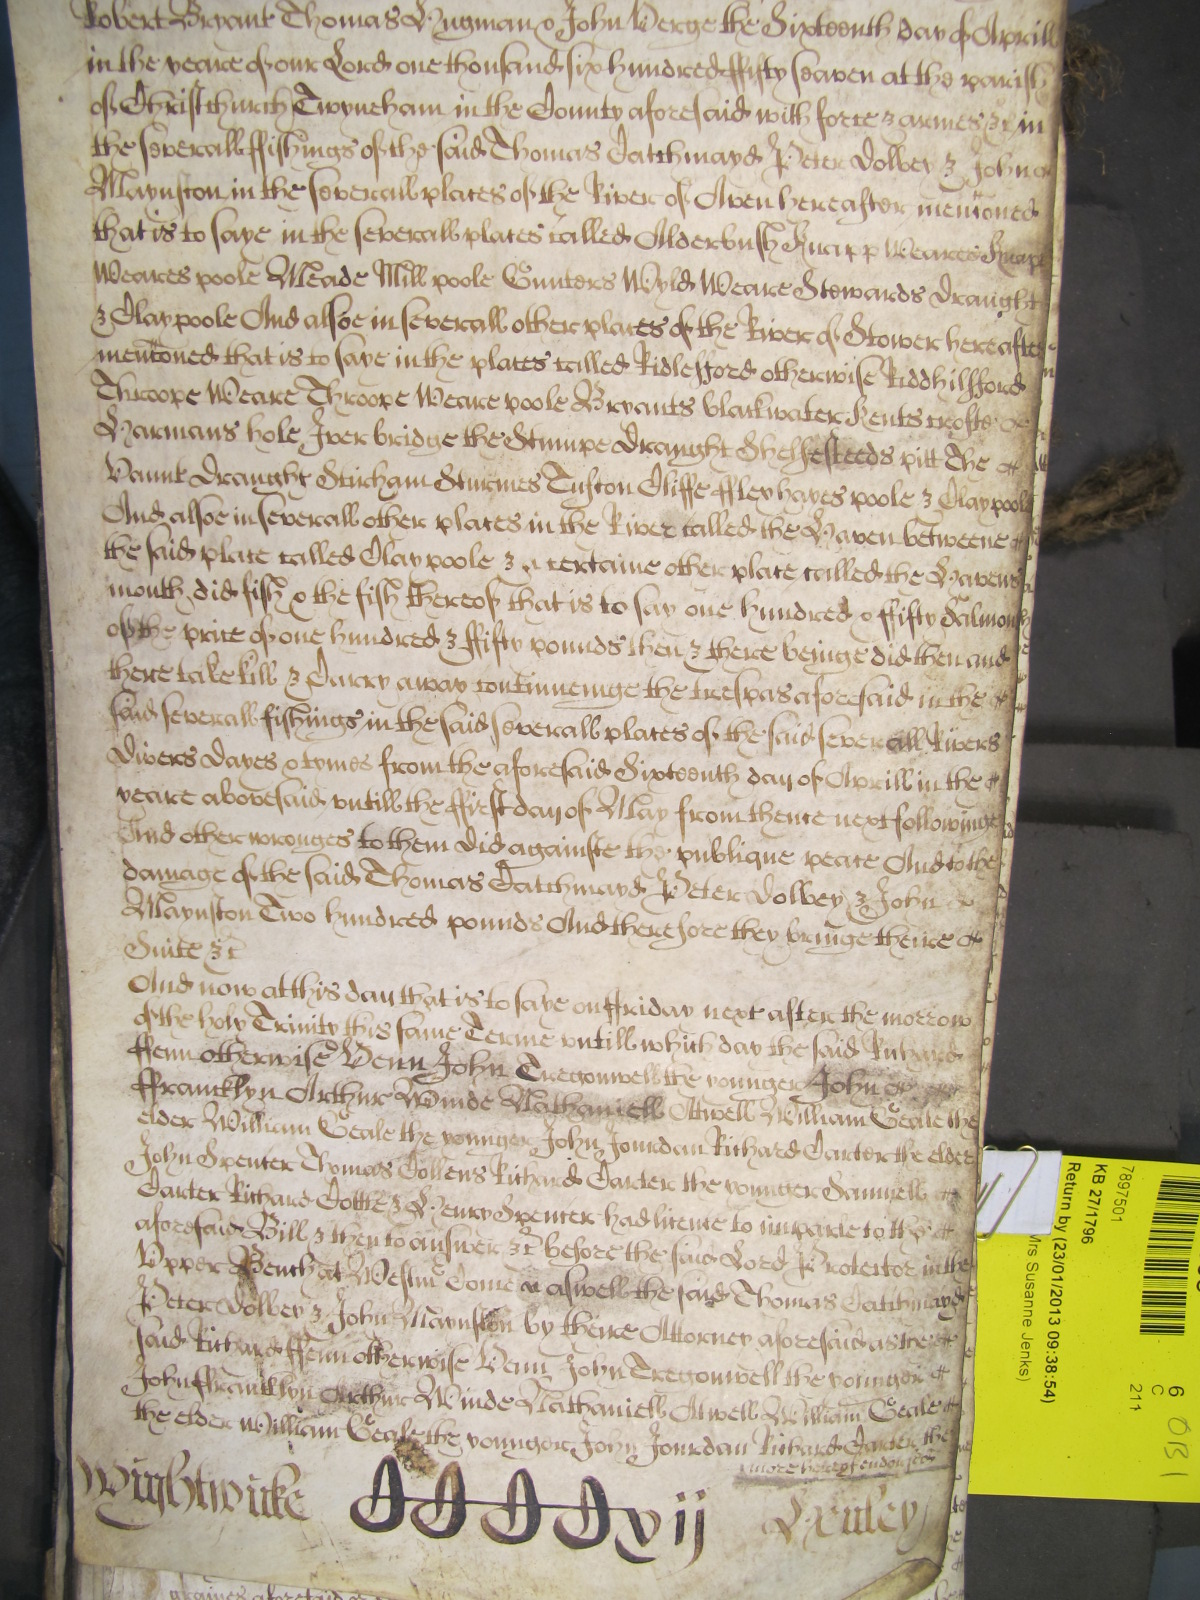 Robert Bryant Thomas Hugman & John Verge the Sixteenth day of Aprill
in the yeare of our Lord one thousand six hundred ffifty seaven at the parish
of Christchurch Twyneham in the County aforesaid with force & armes &c in
the severall ffishings of the said Thomas Catchmayd Peter Dolbey & John
Maynston in the severall places of the River of Aven hereafter mencioned
that is to saye in the severall places called Alderbush Knapp Weares Knapp
Weares poole Meade Mill poole Gunters Wyld Weare Stewards Draught
& Claypoole And alsoe in severall other places of the River of Stower hereafter
mencioned that is to saye in the places called Ridlesford otherwise Riddhilsford
Throope Weare Throope Weare poole Bryants blackwater Kents crofte
Harmans hole Iver bridge the Stumpe Draught Shelfesteeds pitt The
Vaunt Draught Sturham Sturmes Tuston Cliffe ffleyhayes poole & Claypoole
And alsoe in severall other places in the River called the Haven betweene
the said place called Claypoole & a certaine other place called the Havens
mouth did fish & the fish thereof that is to say one hundred & ffifty Salmons
of the price of one hundred & ffifty pounds then & there beinge did then and
there take kill & Carry away continueinge the trespas aforesaid in the
said severall fishings in the said severall places of the said severall Rivers
Divers Dayes & tymes from the aforesaid Sixteenth day of Aprill in the
yeare abovesaid untill the ffirst day of May from thence next followinge
And other wronges to them did againste the publique peace And to the
damage of the said Thomas Catchmayd Peter Dolbey & John
Maynston Two hundred pounds And therefore they bringe theire
Suite &c
And now at this day that is to saye on ffriday next after the morrow
of the holy Trinity this same Terme untill which day the said Richard
ffenn otherwise Venn John Tregonwell the younger John
ffrancklyn Arthur Winde Nathaniell Atwell William Geale the
elder William Geale the younger John Jourdan Richard Carter the elder
John Spencer Thomas Collens Richard Carter the younger Samuell
Carter Richard Cotte & Henry Spencer had licence to imparle to the
aforesaid Bill & then to answer &c before the said Lord Protector in the
Upper Bench at Westmr Come aswell the said Thomas Catchmayd
Peter Dolbey & John Maynston by theire Attorney aforesaid as the
said Richard ffenn otherwise Venn John Tregonwell the younger
John ffrancklyn Arthur Winde Nathaniell Atwell William Geale
the elder William Geale the younger John Jourdan Richard Carter the
Wightwicke CCCCvij Henley
7897501
KB 27/1796
Return by (23/01/2013 09:38:54)
Mrs Susanne Jenks)
6
C
211